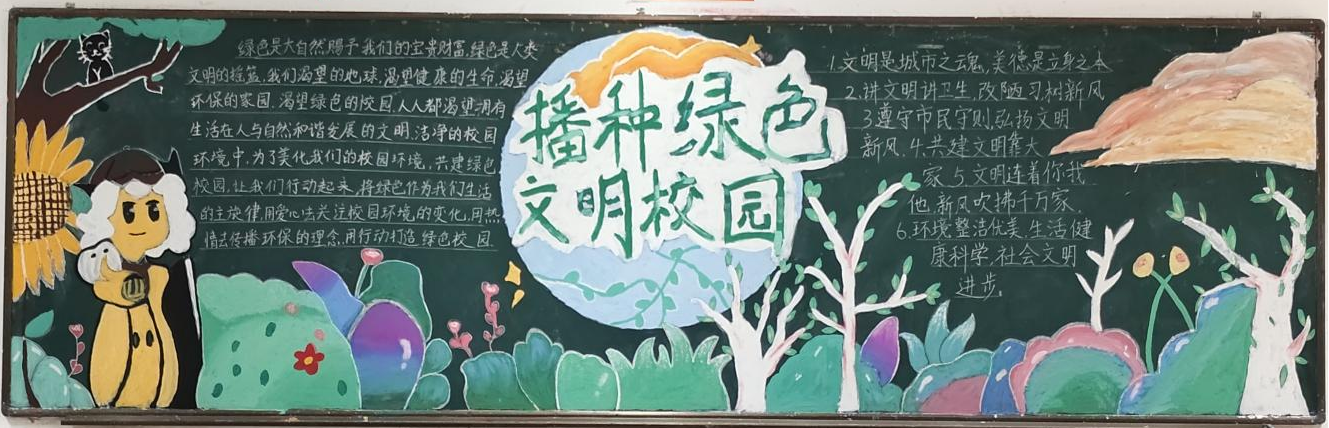 绿色是大自然赐予我们的宝贵财富,绿色是人类
文明的摇篮.我们渴望的地球.渴望健康的生命.渴望
环保的家园.渴望绿色的校园.人人都渴望拥有
生活在人与自然和谐发展的文明.洁净的校园
环境中.为了美化我们的校园环境,共建绿色
校园.让我们行动起来.将绿色作为我们生活
的主旋律,用爱心去关注校园环境的变化.用热
情去传播环保的理念,用行动打造绿色校园.
播种绿色
文明校园
1.文明是城市之魂,美德是立身之本
2.讲文明讲卫生.改陋习树新风
3遵守市民守则,弘扬文明
新风.4.共建文明靠大
家.5.文明连着你我
他.新风吹拂千万家.
6.环境整洁优美.生活健
康科学.社会文明
进步.